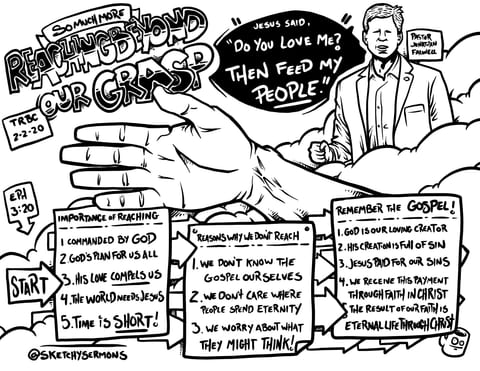 SO MUCH MORE
REACHING BEYOND
OUR GRASP
TRBC
2-2-20
JESUS SAID,
"DO YOU LOVE ME?
THEN FEED MY
PEOPLE."
PASTOR
JOHNATHAN
FALWELL
EPH
3:20
START
IMPORTANCE OF REACHING
1 COMMANDED BY GOD
2 GOD'S PLAN FOR US ALL
3. HIS LOVE COMPELS US
4. THE WORLD NEEDS JESUS
5. TIME IS SHORT!
REASONS WHY WE DON'T REACH
1. WE DON'T KNOW THE
GOSPEL OURSELVES
2. WE DON'T CARE WHERE
PEOPLE SPEND ETERNITY
3. WE WORRY ABOUT WHAT
THEY MIGHT THINK!
REMEMBER THE GOSPEL!
1. GOD IS OUR LOVING CREATOR
2. HIS CREATION IS FULL OF SIN
3. JESUS PAID FOR OUR SINS
4. WE RECEIVE THIS PAYMENT
THROUGH FAITH IN CHRIST
THE RESULT OF OUR FAITH IS
ETERNAL LIFE THROUGH CHRIST
@SKETCHYSERMONS